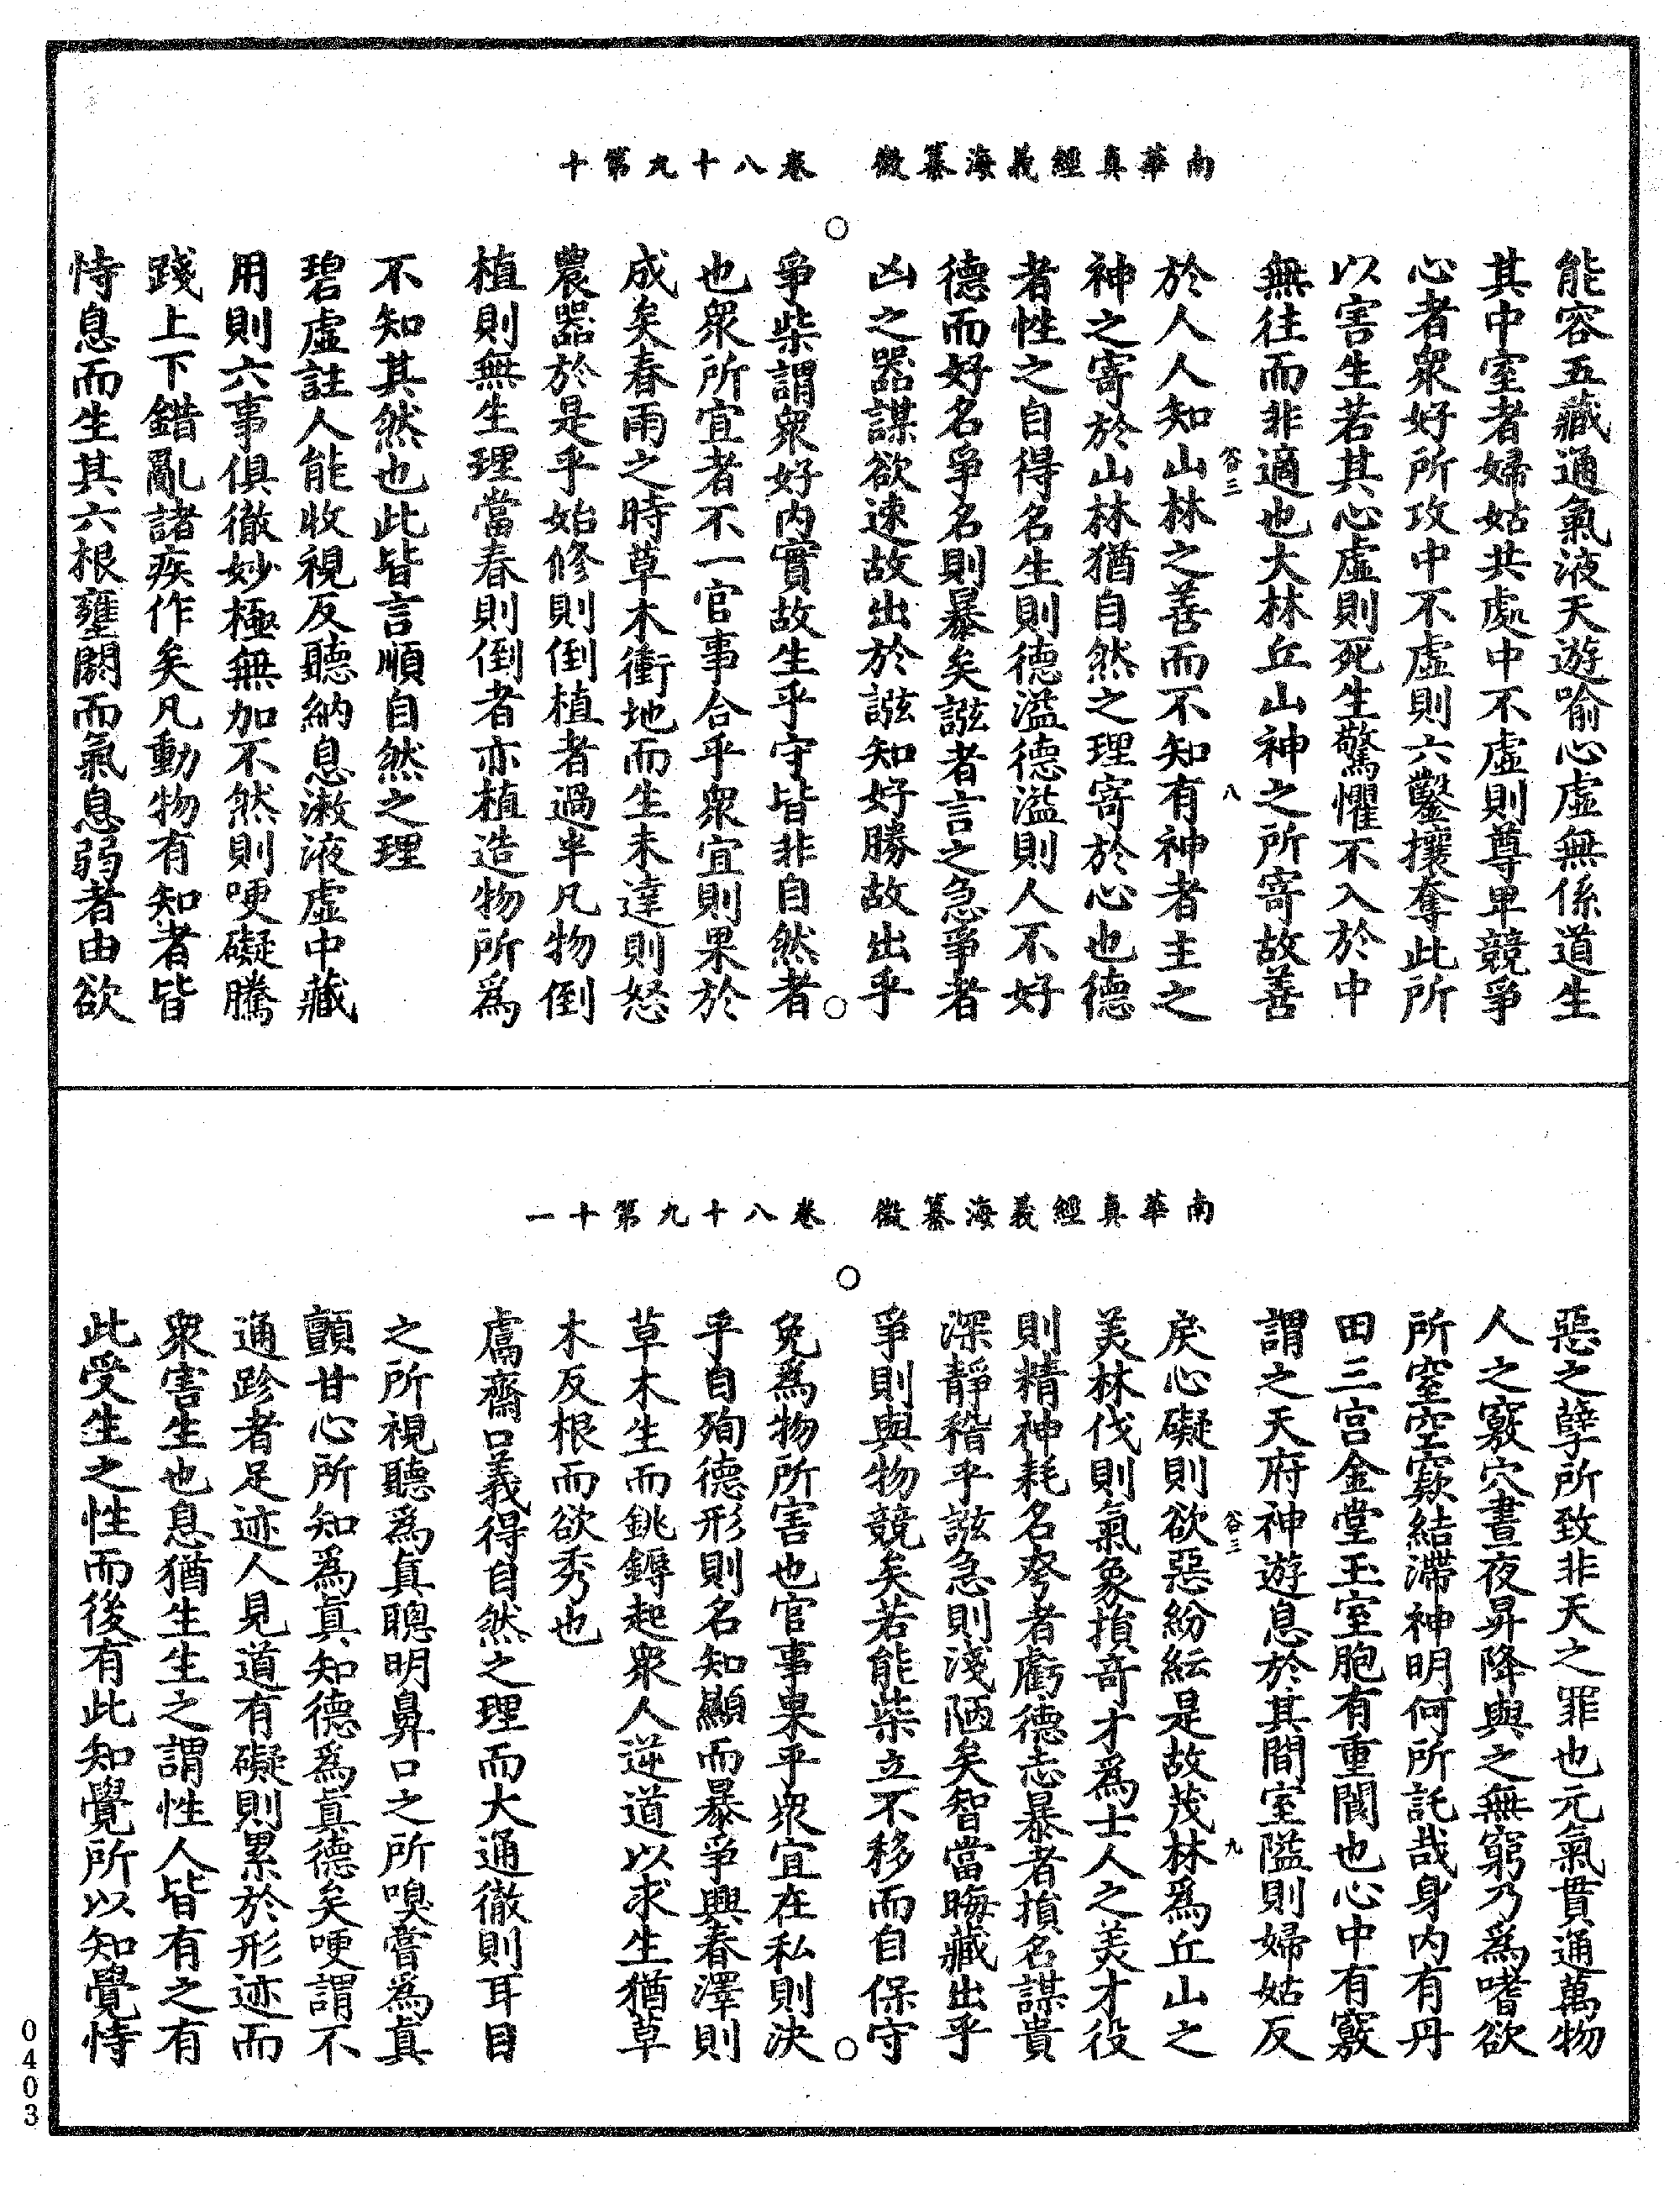 南華真經義海纂微　卷八十九第十
能容五藏通氣液天遊喻心虛無係道生
其中室者婦姑共處中不虛則尊卑競爭
心者衆好所攻中不虛則六鑿攘奪此所
以害生若其心虛則死生驚懼不入於中
無往而非適也大林丘山神之所寄故善
於人人知山林之善而不知有神者主之
神之寄於山林猶自然之理寄於心也德
者性之自得名生則德溢德溢則人不好
德而好名爭名則暴矣誸者言之急爭者
凶之器謀欲速故出於誸知好勝故出乎
爭柴謂衆好內實故生乎守皆非自然者
也衆所宜者不一官事合乎衆宜則果於
成矣春雨之時草木衝地而生未達則怒
農器於是乎始修則倒植者過半凡物倒
植則無生理當春則倒者亦植造物所爲
不知其然也此皆言順自然之理
碧虛註人能收視反聽納息漱液虛中藏
用則六事俱徹妙極無加不然則哽礙騰
踐上下錯亂諸疾作矣凡動物有知者皆
恃息而生其六根壅閼而氣息弱者由欲
谷三
八
南華真經義海纂微　卷八十九第十一
惡之孽所致非天之罪也元氣貫通萬物
人之竅穴晝夜昇降與之無窮乃爲嗜欲
所窒空窾結滯神明何所託哉身內有丹
田三宮金堂玉室胞有重閬也心中有竅
謂之天府神遊息於其間室隘則婦姑反
戾心礙則欲惡紛紜是故茂林爲丘山之
美林伐則氣象損奇才爲士人之美才役
則精神耗名夸者虧德志暴者損名謀貴
深靜稽乎誸急則淺陋矣智當晦藏出乎
爭則與物競矣若能柴立不移而自保守
免爲物所害也官事果乎衆宜在私則決
乎自殉德形則名知顯而暴爭興春澤則
草木生而銚鎒起衆人逆道以求生猶草
木反根而欲秀也
鬳齋口義得自然之理而大通徹則耳目
之所視聽爲真聰明鼻口之所嗅嘗爲真
顫甘心所知爲真知德爲真德矣哽謂不
通跈者足迹人見道有礙則累於形迹而
衆害生也息猶生生之謂性人皆有之有
此受生之性而後有此知覺所以知覺恃
谷三
九
0403